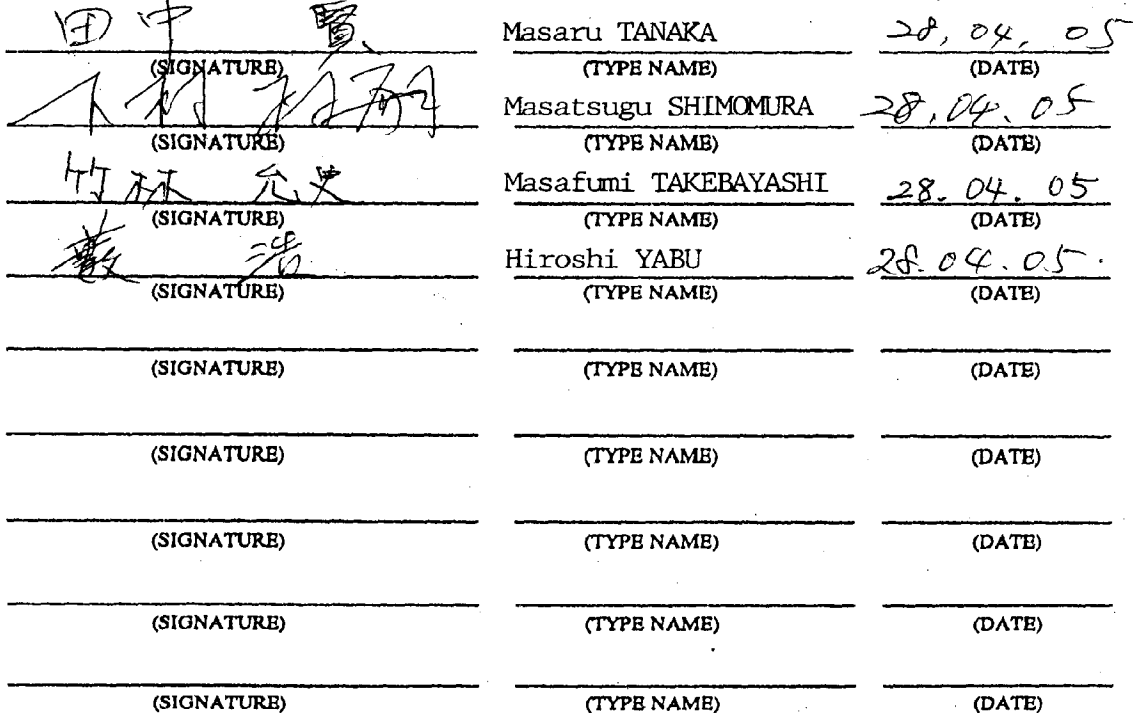 田中 賢 Masaru TANAKA 28, 04, 05
(SIGNATURE) (TYPE NAME) (DATE)
下村 政嗣 Masatsugu SHIMOMURA 28.04.05
(SIGNATURE) (TYPE NAME) (DATE)
竹林 允史 Masafumi TAKEBAYASHI 28.04.05
(SIGNATURE) (TYPE NAME) (DATE)
藪 浩 Hiroshi YABU 28.04.05.
(SIGNATURE) (TYPE NAME) (DATE)
(SIGNATURE) (TYPE NAME) (DATE)
(SIGNATURE) (TYPE NAME) (DATE)
(SIGNATURE) (TYPE NAME) (DATE)
(SIGNATURE) (TYPE NAME) (DATE)
(SIGNATURE) (TYPE NAME) (DATE)